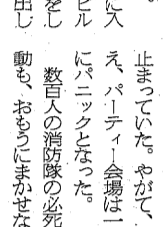 止まっていた。やがて、
え、パーティー会場は一
にパニックとなった。
数百人の消防隊の必死
動も、おもうにまかせな
に入
ビル
をし
出し